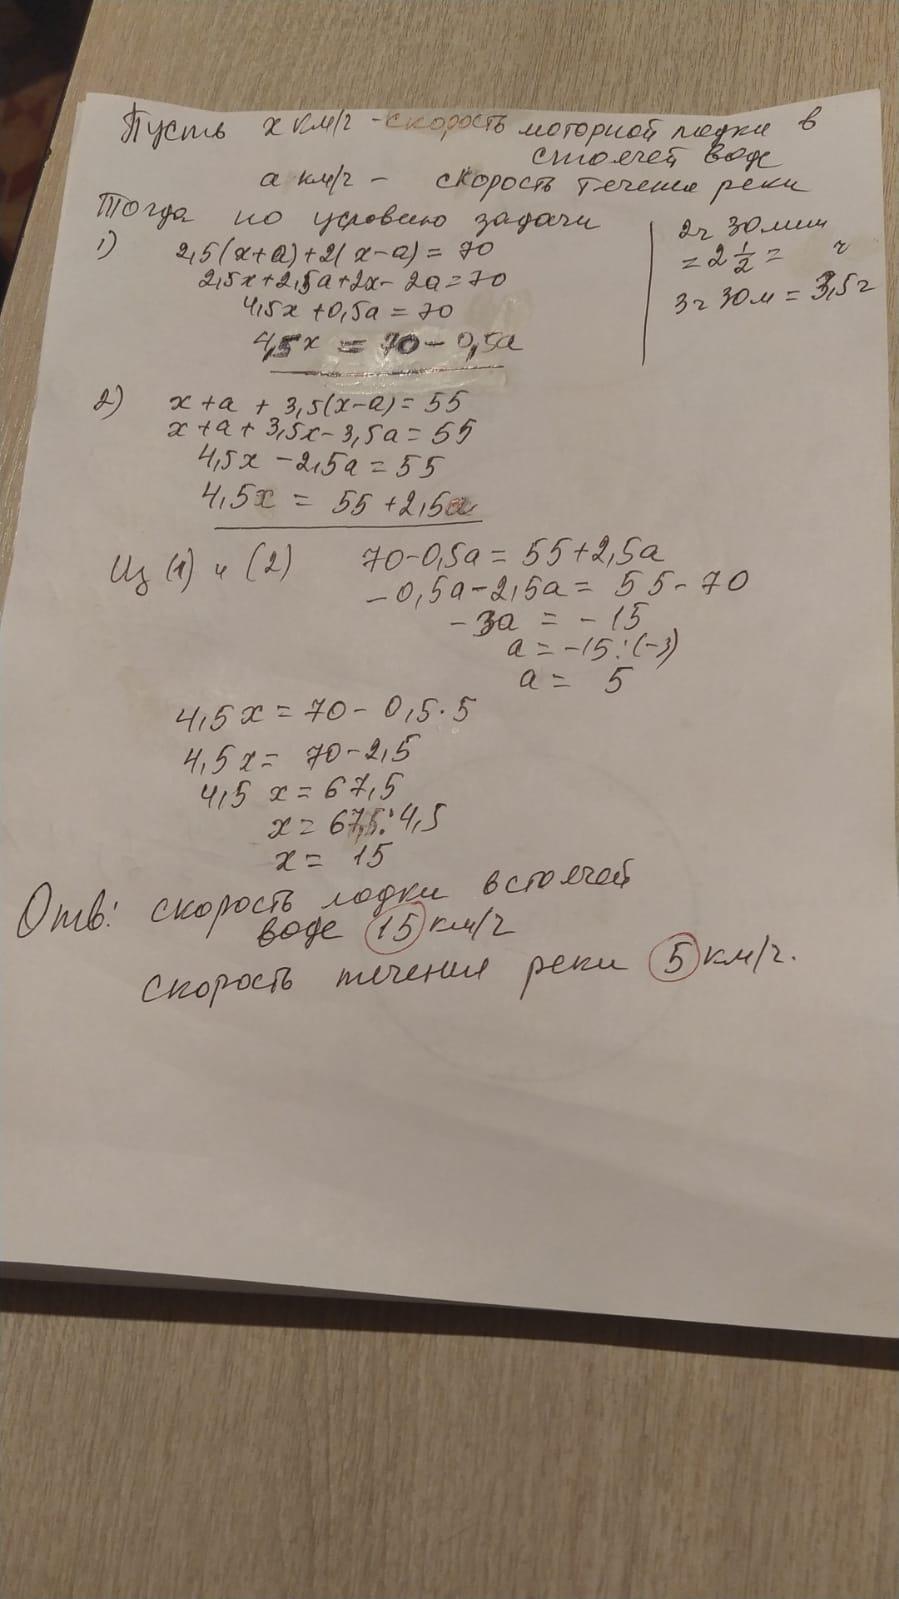 Пусть x км/ч - скорость моторной лодки в
стоячей воде
a км/ч - скорость течения реки
Тогда по условию задачи
1) 2,5(x+a)+2(x-a)=70
2,5x+2,5a+2x-2a=70
4,5x+0,5a=70
4,5x = 70-0,5a
2ч 30мин
=2 1/2 = ч
3ч 30м = 3,5ч
2) x+a + 3,5(x-a)=55
x+a+3,5x-3,5a=55
4,5x-2,5a=55
4,5x = 55+2,5a
Из (1) и (2) 70-0,5a=55+2,5a
-0,5a-2,5a=55-70
-3a = -15
a = -15:(-3)
a = 5
4,5x=70-0,5·5
4,5x= 70-2,5
4,5 x=67,5
x=67,5:4,5
x= 15
Отв: скорость лодки в стоячей
воде 15 км/ч
скорость течения реки 5 км/ч.